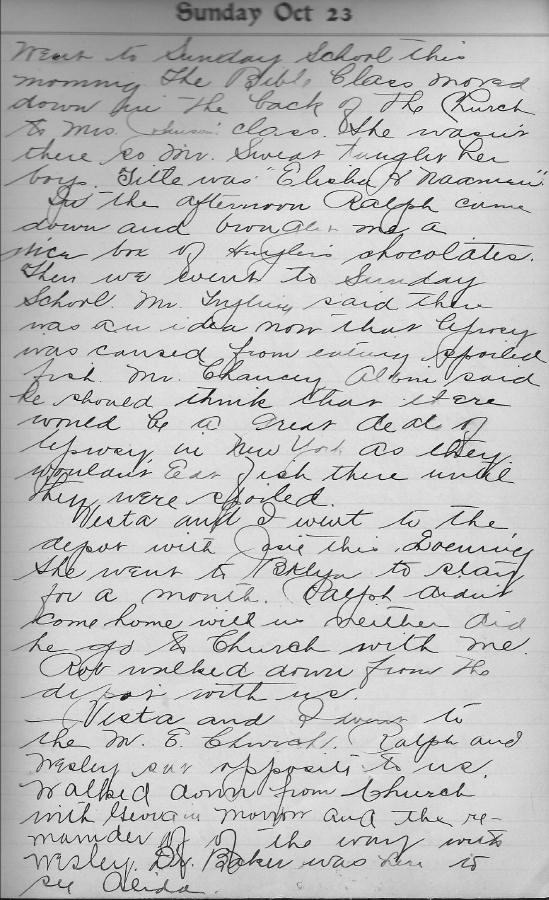 Sunday Oct 23
Went to Sunday School this
morning. The Bible Class moved
down in the back of the Church
to Mrs. Johnson's class. She wasn't
there so Mr. Sweat taught her
boys. Title was "Elisha & Naaman".
In the afternoon Ralph came
down and brought me a
nice box of Huyler's chocolates.
Then we went to Sunday
School. Mr. said there
was an idea now that leprosy
was caused from eating spoiled
fish. Mr. Chancey said
he should think that there
would be a great deal of
leprosy in New York as they
wouldn't eat fish there until
they were spoiled.
Vesta and I went to the
depot with this evening
She went to Bklyn to stay
for a month. Ralph didn't
come home with us neither did
he go to Church with me.
Rob walked down from the
depot with us.
— Vesta and I went to
the M. E. Church. Ralph and
Wesley sat opposite to us.
Walked down from Church
with Georgia Morrow and the re-
mainder of of the way with
Wesley. Dr. Baker was here to
see Alida.